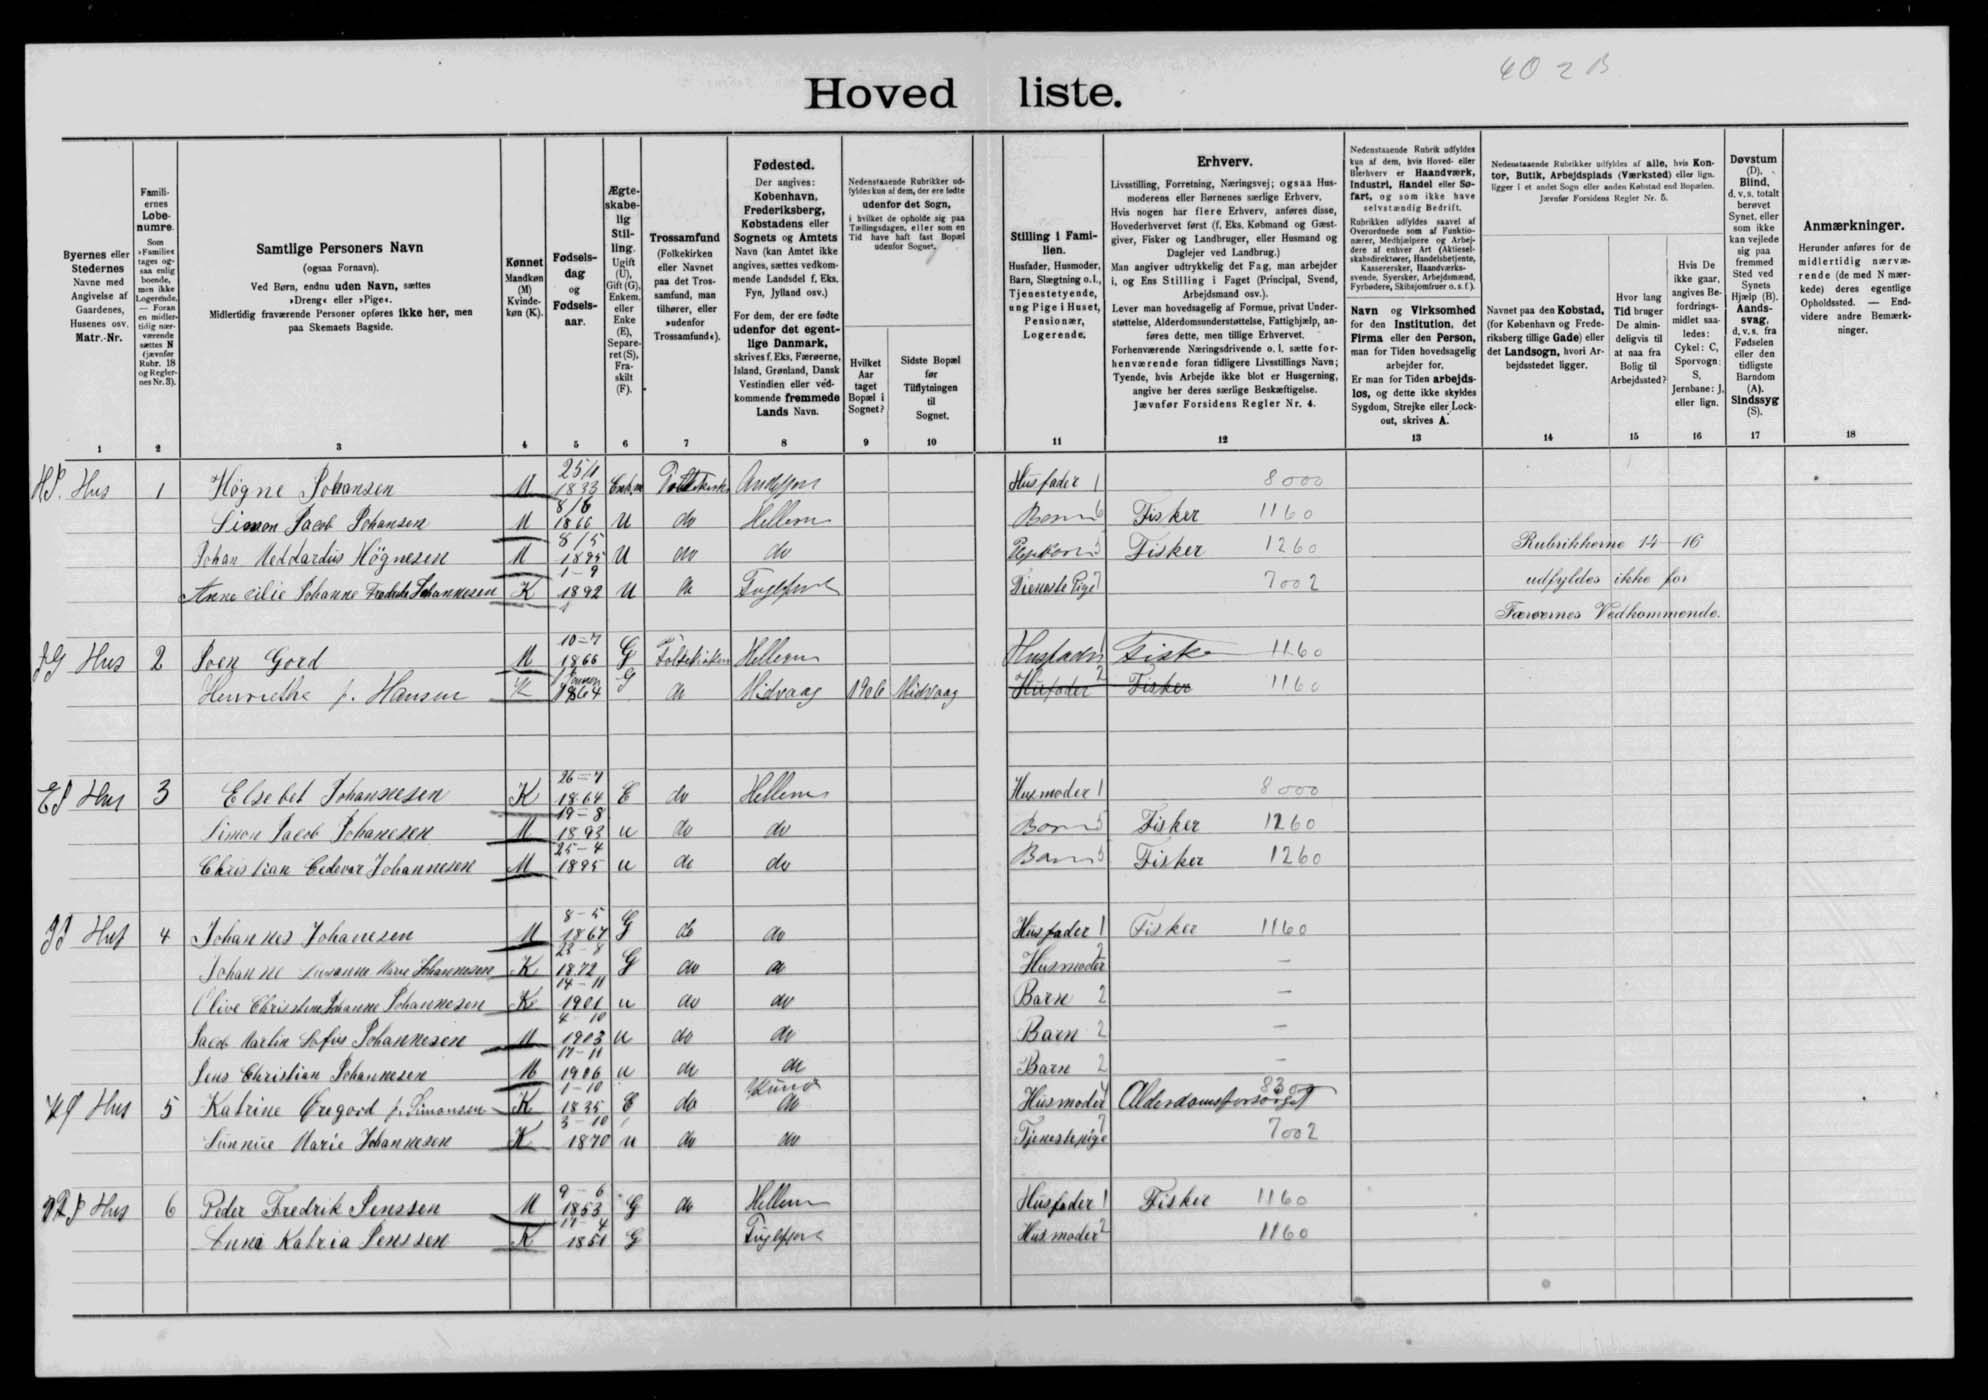 40 2 B
Hoved liste.
Byernes eller Stedernes Navne med Angivelse af Gaardenes, Husenes osv. Matr.-Nr.
Famili- ernes Løbe- numre.
Som »Familie« tages og- saa enlig boende, men ikke Logerende. — Foran en midler- tidig nær- værende sættes N (jævnfør Rubr. 18 og Regler- nes Nr. 3).
Samtlige Personers Navn
(ogsaa Fornavn).
Ved Børn, endnu uden Navn, sættes
»Dreng« eller »Pige«.
Midlertidig fraværende Personer opføres ikke her, men
paa Skemaets Bagside.
Kønnet Mandkøn (M) Kvinde- køn (K).
Fødsels- dag og Fødsels- aar.
Ægte- skabe- lig Stil- ling. Ugift (U), Gift (G), Enkem. eller Enke (E), Separe- ret (S), Fra- skilt (F).
Trossamfund (Folkekirken eller Navnet paa det Tros- samfund, man tilhører, eller »udenfor Trossamfund«).
Fødested.
Der angives: København, Frederiksberg, Købstadens eller Sognets og Amtets Navn (kan Amtet ikke angives, sættes vedkom- mende Landsdel f. Eks. Fyn, Jylland osv.)
For dem, der ere fødte udenfor det egent- lige Danmark, skrives f. Eks. Færøerne, Island, Grønland, Dansk Vestindien eller ved- kommende fremmede Lands Navn.
Nedenstaaende Rubrikker ud- fyldes kun af dem, der ere fødte udenfor det Sogn, i hvilket de opholde sig paa Tællingsdagen, eller som en Tid have haft fast Bopæl udenfor Sognet.
Hvilket Aar taget Bopæl i Sognet?
Sidste Bopæl før Tilflytningen til Sognet.
Stilling i Fami- lien.
Husfader, Husmoder, Barn, Slægtning o.l., Tjenestetyende, ung Pige i Huset, Pensionær, Logerende.
Erhverv.
Livsstilling, Forretning, Næringsvej; ogsaa Hus- moderens eller Børnenes særlige Erhverv.
Hvis nogen har flere Erhverv, anføres disse, Hovederhvervet først (f. Eks. Købmand og Gæst- giver, Fisker og Landbruger, eller Husmand og Daglejer ved Landbrug.)
Man angiver udtrykkelig det Fag, man arbejder i, og Ens Stilling i Faget (Principal, Svend, Arbejdsmand osv.).
Lever man hovedsagelig af Formue, privat Under- støttelse, Alderdomsunderstøttelse, Fattighjælp, an- føres dette, men tillige Erhvervet.
Forhenværende Næringsdrivende o. l. sætte for- henværende foran tidligere Livsstillings Navn; Tyende, hvis Arbejde ikke blot er Husgerning, angive her deres særlige Beskæftigelse.
Jævnfør Forsidens Regler Nr. 4.
Nedenstaaende Rubrik udfyldes kun af dem, hvis Hoved- eller Bierhverv er Haandværk, Industri, Handel eller Sø- fart, og som ikke have selvstændig Bedrift.
Rubrikken udfyldes saavel af Overordnede som af Funktio- nærer, Medhjælpere og Arbej- dere af enhver Art (Aktiesel- skabsdirektører, Handelsbetjente, Kasserersker, Haandværks- svende, Syersker, Arbejdsmænd, Fyrbødere, Skibsjomfruer o. s. f.).
Navn og Virksomhed for den Institution, det Firma eller den Person, man for Tiden hovedsagelig arbejder for.
Er man for Tiden arbejds- løs, og dette ikke skyldes Sygdom, Strejke eller Lock- out, skrives A.
Nedenstaaende Rubrikker udfyldes af alle, hvis Kon- tor, Butik, Arbejdsplads (Værksted) eller lign. ligger i et andet Sogn eller anden Købstad end Bopælen. Jævnfør Forsidens Regler Nr. 5.
Navnet paa den Købstad, (for København og Frede- riksberg tillige Gade) eller det Landsogn, hvori Ar- bejdsstedet ligger.
Hvor lang Tid bruger De almin- deligvis til at naa fra Bolig til Arbejdssted?
Hvis De ikke gaar, angives Be- fordrings- midlet saa- ledes: Cykel: C, Sporvogn: S, Jernbane: J, eller lign.
Døvstum (D), Blind, d. v. s. totalt berøvet Synet, eller som ikke kan vejlede sig paa fremmed Sted ved Synets Hjælp (B). Aands- svag, d. v. s. fra Fødselen eller den tidligste Barndom (A). Sindssyg (S).
Anmærkninger.
Herunder anføres for de midlertidig nærvæ- rende (de med N mær- kede) deres egentlige Opholdssted. — End- videre andre Bemærk- ninger.
1 2 3 4 5 6 7 8 9 10 11 12 13 14 15 16 17 18
HJ. Hus 1 Høgne Johansen M 25/1 1833 Enkem Folkekirke Andefjord Husfader 1 8000
Simon Jacob Johansen M 8/6 1866 U do Hellerne Barn 6 Fisker 1160
Johan Meddardus Høgnesen M 8/5 1895 U do do 5 Fisker 1260 Rubrikkerne 14 - 16
Anne Cilie Johanne Fredrikke Johannesen K 1-9 1892 U do Fuglefjord Tieneste Pige 7 7002 udfyldes ikke for
Færøernes Vedkommende.
JG Hus 2 Joen Gord M 10-7 1866 G Folkekirken Hellerne Husfader 1 Fisker 1160
Henriethe f. Hansen K 1864 G do Midvaag 1906 Midvaag Husfader 2 Fisker 1160
EJ Hus 3 Elsebet Johannesen K 26-7 1864 E do Hellerne Husmoder 1 8000
Simon Jacob Johannesen M 19-8 1893 u do do Barn 5 Fisker 1260
Christian Johannesen M 25-4 1895 u do do Barn 5 Fisker 1260
JJ Hus 4 Johannes Johannesen M 8-5 1867 G do do Husfader 1 Fisker 1160
Johanne Susanne Marie Johannesen K 23-8 1872 G do do Husmoder 2 —
Olive Christine Johanne Johannesen K 14-11 1901 u do do Barn 2 —
Jacob Martin Sofus Johannesen M 4-10 1903 u do do Barn 2 —
Jens Christian Johannesen M 17-11 1906 u do do Barn 2 —
KJ Hus 5 Katrine Øregord f. Simonsen K 1-10 1835 E do Kunø do Husmoder 1 Alderdomsforsørget 8300
Sunnue Marie Johannesen K 3-10 1870 u do do Tjenestepige 7 7002
PFJ Hus 6 Peder Fredrik Jenssen M 9-6 1853 G do Hellerne Husfader 1 Fisker 1160
Anna Katria Jenssen K 17-4 1851 G Fuglefjord Husmoder 2 1160